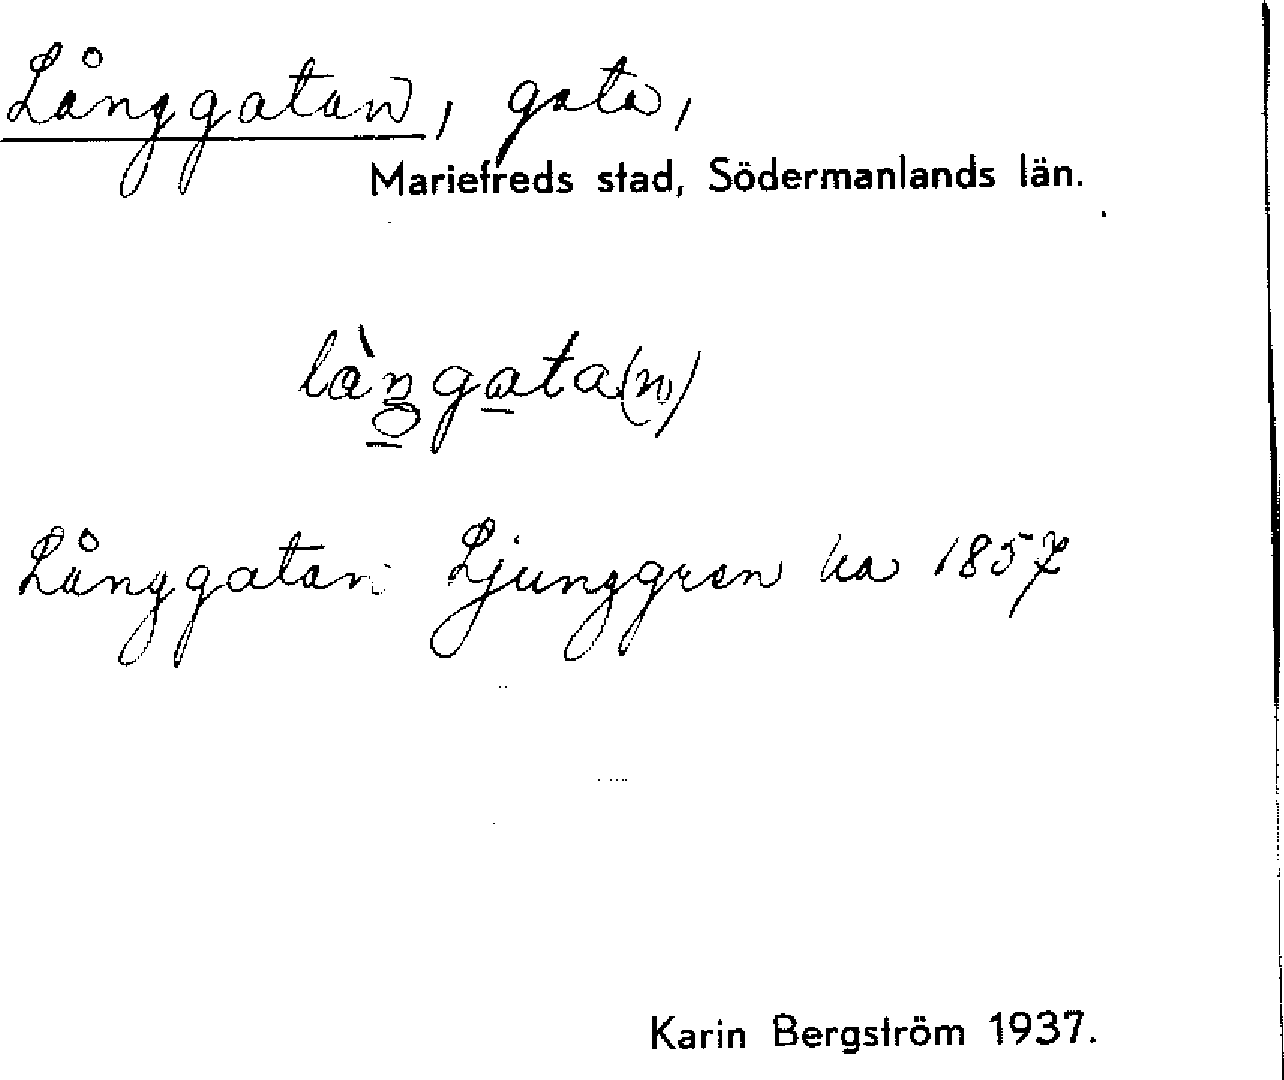 Långgatan, gata,
Mariefreds stad, Södermanlands län.
làŋgata(n)
Långgatan Ljunggren ka 1857
Karin Bergström 1937.